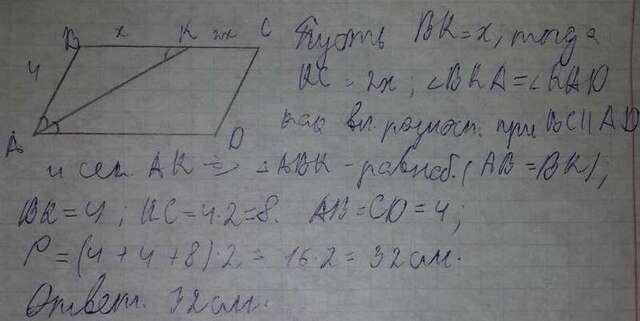 B x K 2x C
4
A D
Пусть BK = x, тогда
KC = 2x; ∠BKA = ∠KAD
как вн. разност. при BC || AD
и сек. AK => △ABK - равноб. (AB = BK),
BK = 4; KC = 4·2 = 8. AB = CD = 4;
P = (4 + 4 + 8)·2 = 16·2 = 32 см.
Ответ. 32 см.